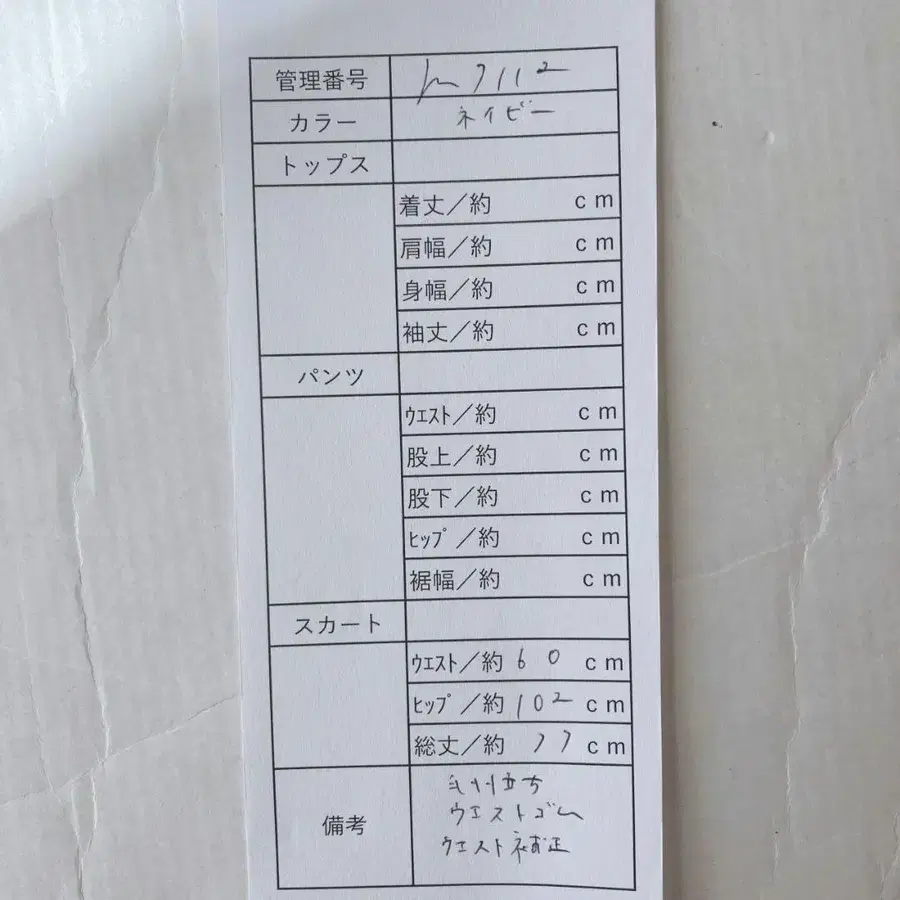 管理番号 h7112
カラー ネイビー
トップス
着丈／約 cm
肩幅／約 cm
身幅／約 cm
袖丈／約 cm
パンツ
ウエスト／約 cm
股上／約 cm
股下／約 cm
ヒップ／約 cm
裾幅／約 cm
スカート
ウエスト／約 60 cm
ヒップ／約 102 cm
総丈／約 77 cm
備考
毛羽立ち
ウエストゴム
ウエスト補正